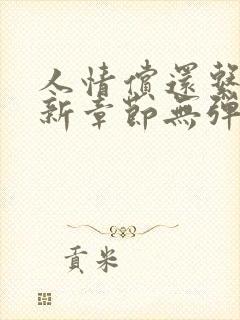 人情償還繫
新章節無彈
貢米